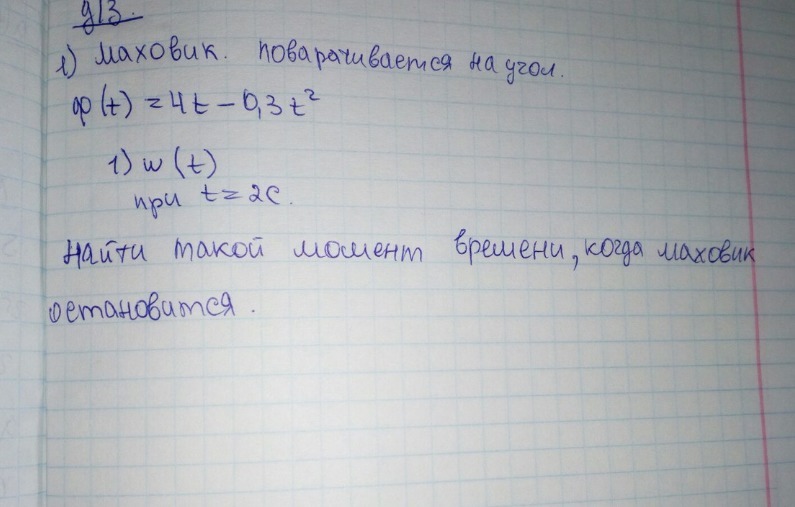 д/з.
1) маховик. поварачивается на угол.
φ(t) = 4t - 0,3t²
1) w(t)
при t = 2c.
Найти такой момент времени, когда маховик
остановится.